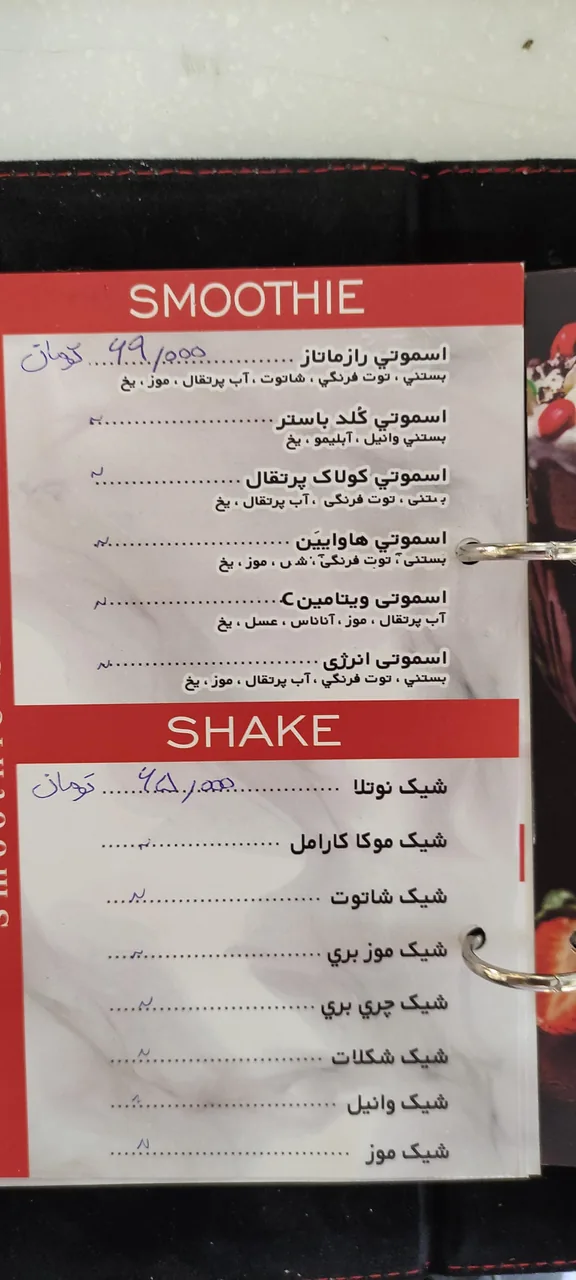 SMOOTHIE
اسموتي رازماتاز ........................ ۶۹/۰۰۰ تومان
بستني ، توت فرنگي ، شاتوت ، آب پرتقال ، موز ، يخ
اسموتي کُلد باستر ........................ 〃
بستني وانيل ، آبليمو ، يخ
اسموتي کولاک پرتقال ........................ 〃
بستنی ، توت فرنگی ، آب پرتقال ، يخ
اسموتي هاوايیَن ........................ 〃
بستنی ، توت فرنگی ، موز ، يخ
اسموتی ویتامین C ........................ 〃
آب پرتقال ، موز ، آناناس ، عسل ، يخ
اسموتی انرژی ........................ 〃
بستني ، توت فرنگي ، آب پرتقال ، موز ، يخ
SHAKE
شیک نوتلا ........................ ۶۵/۰۰۰ تومان
شیک موکا کارامل ........................ 〃
شیک شاتوت ........................ 〃
شیک موز بري ........................ 〃
شیک چري بري ........................ 〃
شیک شکلات ........................ 〃
شیک وانیل ........................ 〃
شیک موز ........................ 〃